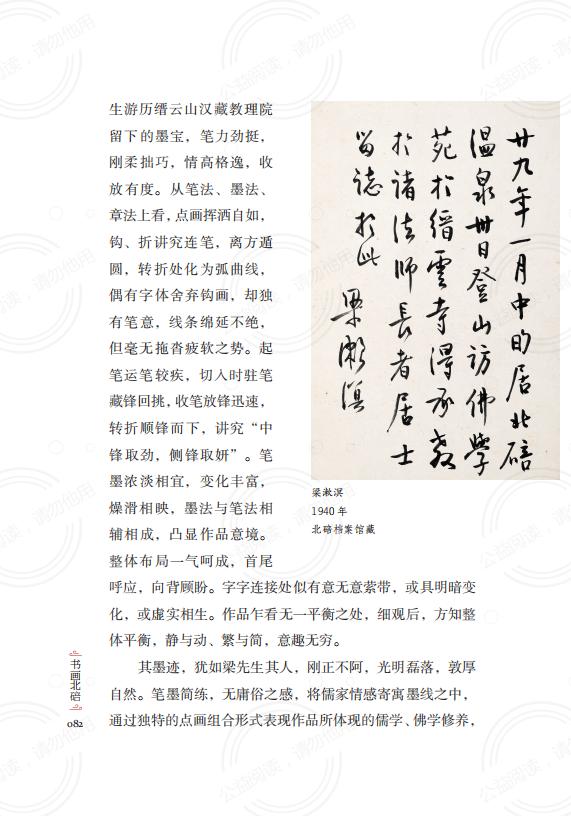 生游历缙云山汉藏教理院
留下的墨宝，笔力劲挺，
刚柔拙巧，情高格逸，收
放有度。从笔法、墨法、
章法上看，点画挥洒自如，
钩、折讲究连笔，离方遁
圆，转折处化为弧曲线，
偶有字体舍弃钩画，却独
有笔意，线条绵延不绝，
但毫无拖沓疲软之势。起
笔运笔较疾，切入时驻笔
藏锋回挑，收笔放锋迅速，
转折顺锋而下，讲究“中
锋取劲，侧锋取妍”。笔
墨浓淡相宜，变化丰富，
燥滑相映，墨法与笔法相
辅相成，凸显作品意境。
整体布局一气呵成，首尾
廿九年一月中旬居北碚
温泉卅日登山访佛学
苑于缙云寺得承教
于诸法师长者居士
留志于此
梁漱溟
梁漱溟
1940 年
北碚档案馆藏
呼应，向背顾盼。字字连接处似有意无意萦带，或具明暗变
化，或虚实相生。作品乍看无一平衡之处，细观后，方知整
体平衡，静与动、繁与简，意趣无穷。
其墨迹，犹如梁先生其人，刚正不阿，光明磊落，敦厚
自然。笔墨简练，无庸俗之感，将儒家情感寄寓墨线之中，
通过独特的点画组合形式表现作品所体现的儒学、佛学修养，
书画北碚
082
公益阅读，请勿他用